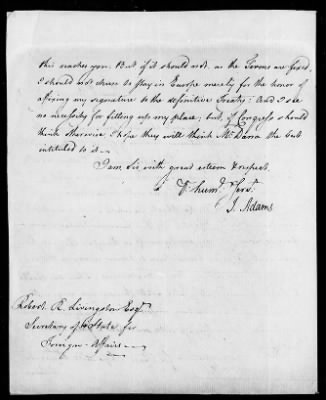 this reaches you. But if it should not, as the Terms are fixed,
I should not chuse to stay in Europe merely for the honor of
affixing my signature to the definitive Treaty: And I see
no necessity for filling up my place; but, if Congress should
think otherwise, I hope they will think Mr. Dana the best
intitled to it —
I am, Sir, with great esteem & respect.
Yr. hum. Servt.
J. Adams
Robert R. Livingston Esqr.
Secretary of State for
Foreign Affairs